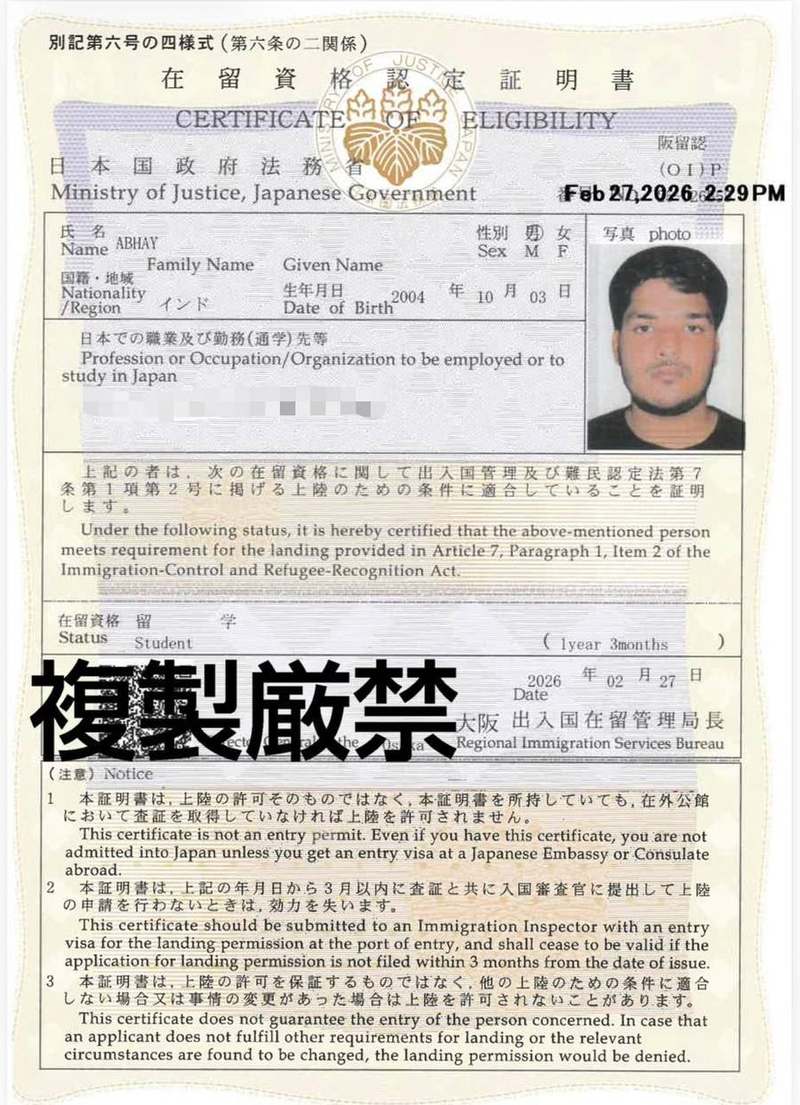 別記第六号の四様式 (第六条の二関係)
在留資格認定証明書
CERTIFICATE OF ELIGIBILITY
MINISTRY OF JUSTICE, JAPAN
阪留認
日本国政府法務省
(OI)P
Ministry of Justice, Japanese Government
Feb 27,2026 2:29 PM
氏名 ABHAY
Name
Family Name Given Name
性別 男 女
Sex M F
写真 photo
国籍・地域
Nationality
/Region
インド
生年月日 2004 年 10 月 03 日
Date of Birth
日本での職業及び勤務(通学)先等
Profession or Occupation/Organization to be employed or to
study in Japan
上記の者は, 次の在留資格に関して出入国管理及び難民認定法第7
条第1項第2号に掲げる上陸のための条件に適合していることを証明
します。
Under the following status, it is hereby certified that the above-mentioned person
meets requirement for the landing provided in Article 7, Paragraph 1, Item 2 of the
Immigration-Control and Refugee-Recognition Act.
在留資格 留 学
Status Student ( 1year 3months )
2026 年 02 月 27 日
Date
複製厳禁
大阪 出入国在留管理局長
the Osaka Regional Immigration Services Bureau
(注意) Notice
1 本証明書は, 上陸の許可そのものではなく, 本証明書を所持していても, 在外公館
において査証を取得していなければ上陸を許可されません。
This certificate is not an entry permit. Even if you have this certificate, you are not
admitted into Japan unless you get an entry visa at a Japanese Embassy or Consulate
abroad.
2 本証明書は, 上記の年月日から3月以内に査証と共に入国審査官に提出して上陸
の申請を行わないときは, 効力を失います。
This certificate should be submitted to an Immigration Inspector with an entry
visa for the landing permission at the port of entry, and shall cease to be valid if the
application for landing permission is not filed within 3 months from the date of issue.
3 本証明書は, 上陸の許可を保証するものではなく, 他の上陸のための条件に適合
しない場合又は事情の変更があった場合は上陸を許可されないことがあります。
This certificate does not guarantee the entry of the person concerned. In case that
an applicant does not fulfill other requirements for landing or the relevant
circumstances are found to be changed, the landing permission would be denied.